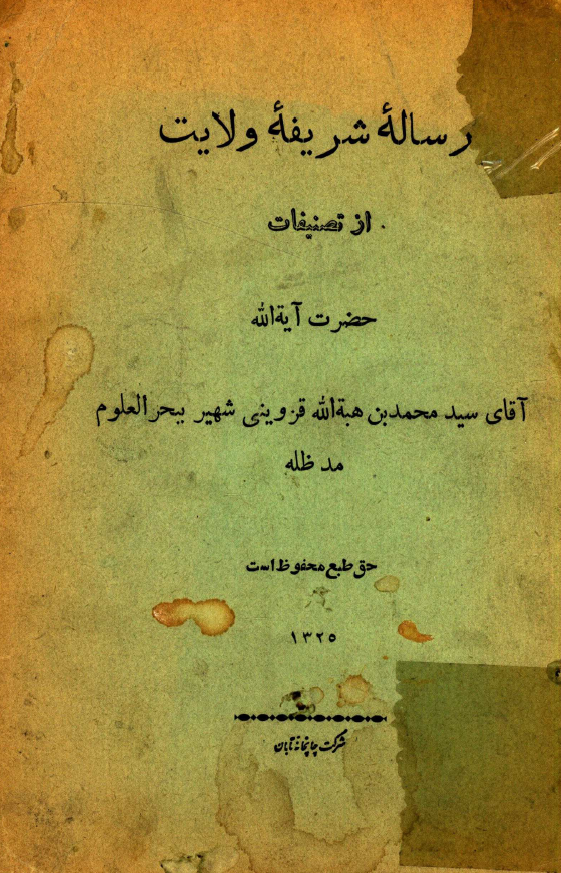 رسالهٔ شریفهٔ ولایت
از تصنیفات
حضرت آیةالله
آقای سید محمدبن هبةالله قزوینی شهیر ببحرالعلوم
مد ظله
حق طبع محفوظ است
۱۳۲۵
شرکت چاپخانهٔ تابان